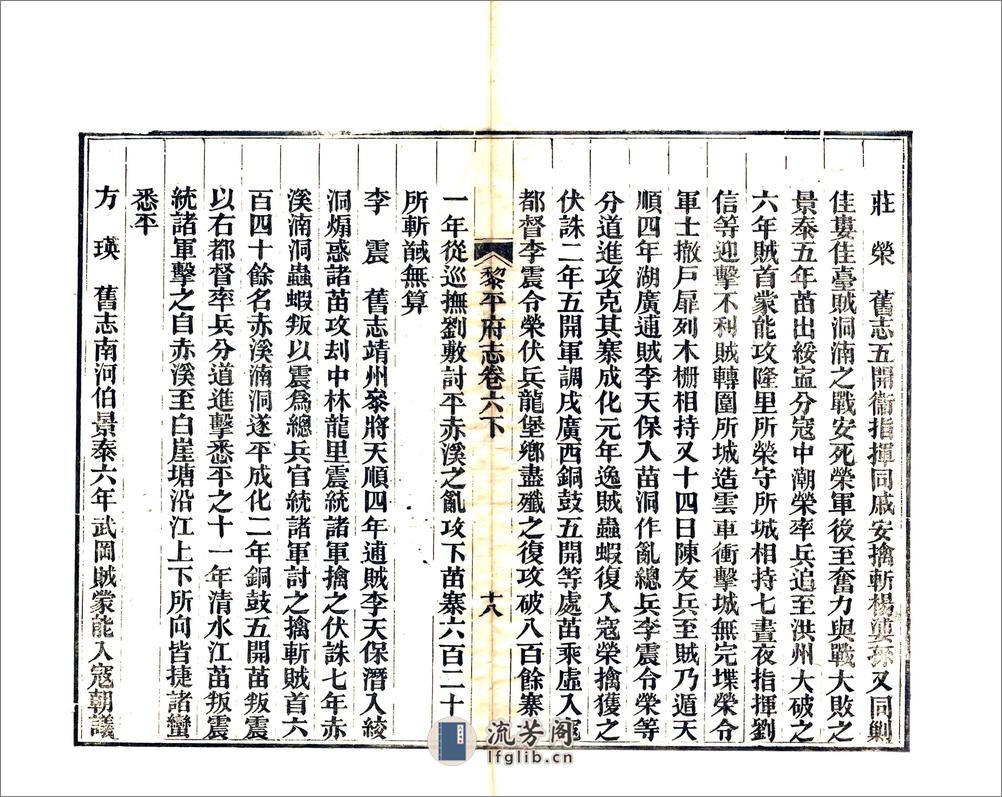 莊 榮 舊志五開衞指揮同戚安擒斬楊 孫又同剿
佳婁佳臺賊洞湳之戰安死榮軍後至奮力與戰大敗之
景泰五年苗出綏寍分寇中潮榮率兵追至洪州大破之
六年賊首蒙能攻隆里所榮守所城相持七晝夜指揮劉
信等迎擊不利賊轉圍所城造雲車衝擊城無完堞榮令
軍士撤戸扉列木栅相持又十四日陳友兵至賊乃遁天
順四年湖廣逋賊李天保入苗洞作亂總兵李震令榮等
分道進攻克其寨成化元年逸賊蟲蝦復入寇榮擒獲之
伏誅二年五開軍調戌廣西銅鼓五開等處苗乘虛入寇
都督李震令榮伏兵龍堡鄉盡殲之復攻破八百餘寨
黎平府志卷六下
十八
一年從巡撫劉敷討平赤溪之亂攻下苗寨六百二十
所斬馘無算
李 震 舊志靖州叅將天順四年逋賊李天保潛入絞
洞煽惑諸苗攻刦中林龍里震統諸軍擒之伏誅七年赤
溪湳洞蟲蝦叛以震爲總兵官統諸軍討之擒斬賊首六
百四十餘名赤溪湳洞遂平成化二年銅鼓五開苗叛震
以右都督率兵分道進擊悉平之十一年清水江苗叛震
統諸軍擊之自赤溪至白崖塘沿江上下所向皆捷諸蠻
悉平
方 瑛 舊志南河伯景泰六年武岡賊蒙能入寇朝議
流芳阁
lfglib.cn